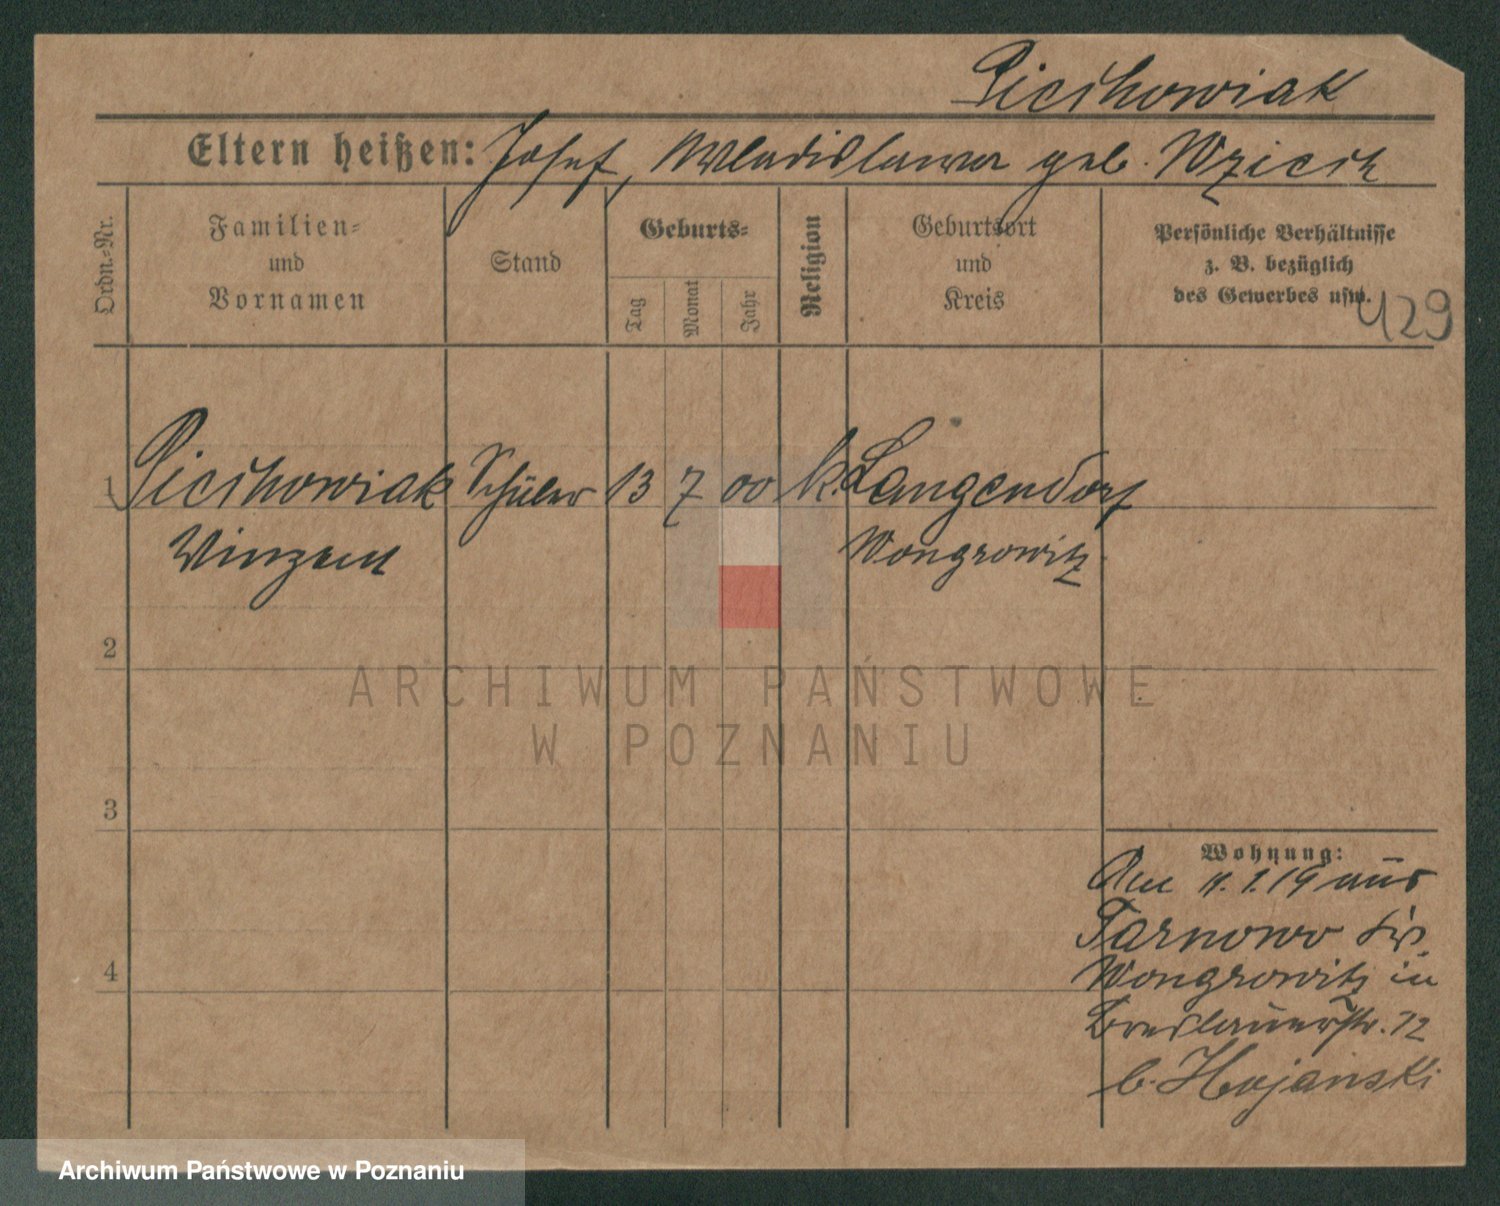 Piechowiak
Eltern heißen: Josef, Wladislawa geb.
Ordn.-Nr.
Familien-
und
Vornamen
Stand
Geburts-
Tag
Monat
Jahr
Religion
Geburtsort
und
Kreis
Persönliche Verhältnisse
z. B. bezüglich
des Gewerbes usw.
129
1 Piechowiak Schüler 13 7 00 k. Langendorf
Winzent Wongrowitz
2
ARCHIWUM PAŃSTWOWE
W POZNANIU
3
4
Wohnung:
Am 11.1.19 aus
Tarnowo
Wongrowitz in
Breslauerstr. 12
b. Hojanski
Archiwum Państwowe w Poznaniu